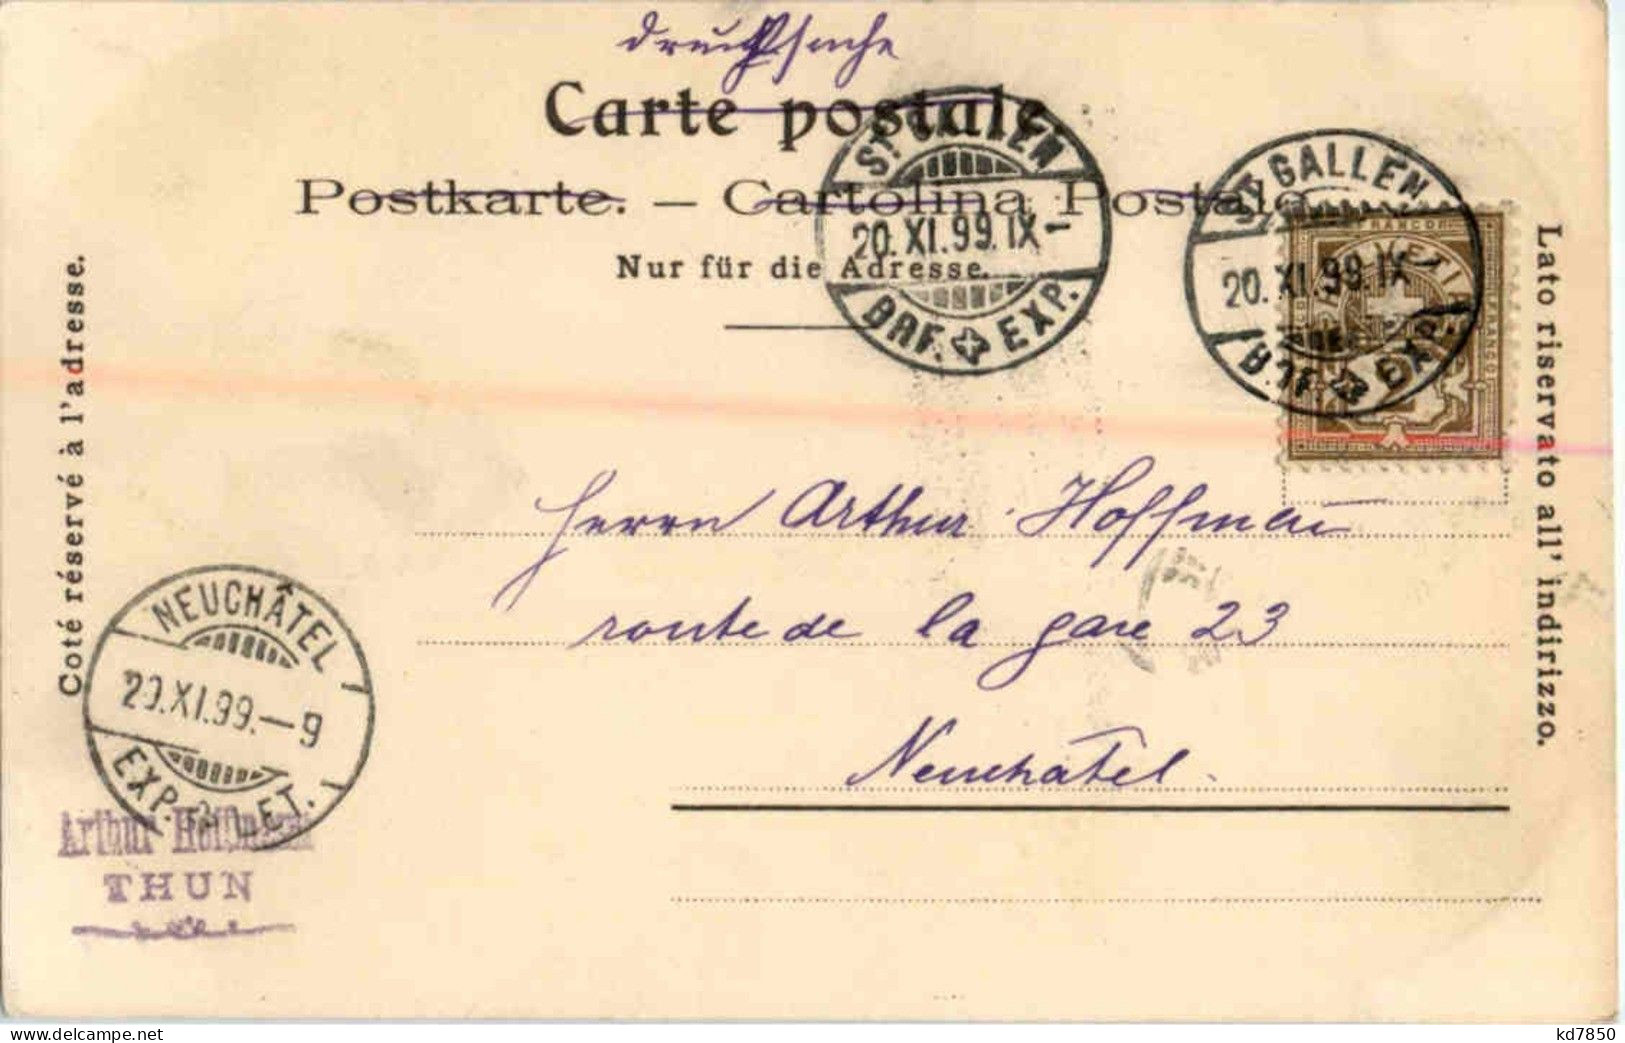 Drucksache
Carte postale
Postkarte. — Cartolina Postale
Nur für die Adresse.
ST. GALLEN
20.XI.99.IX-
BRF. EXP.
ST. GALLEN
20.XI.99.IX
BRF. EXP.
FRANCO
HELVETIA
FRANCO
Coté réservé à l'adresse.
Lato riservato all' indirizzo.
Herrn Arthur Hoffmann
route de la gare 23
Neuchâtel.
NEUCHÂTEL
20.XI.99.-9
EXP. LET.
Arthur Hoffmann
THUN
kd7850